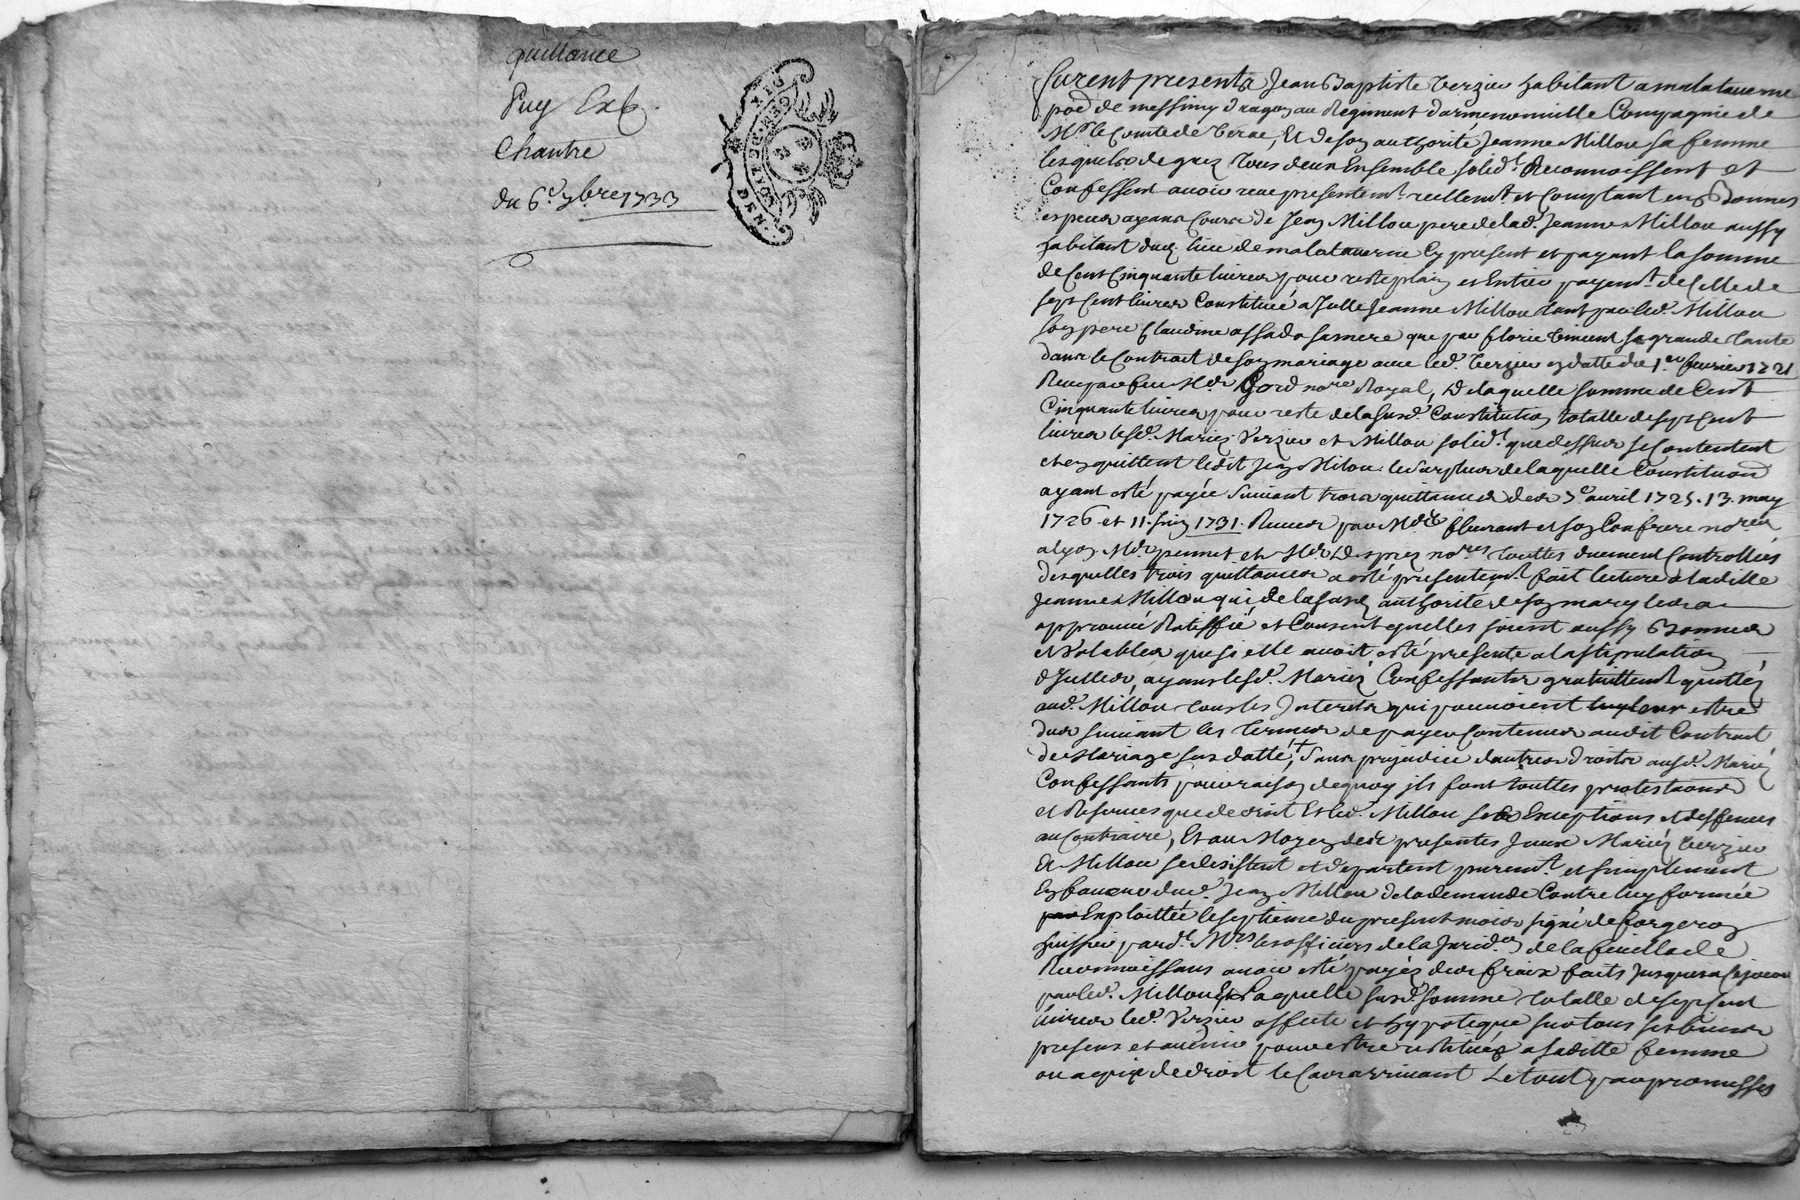 quittance
Puy Exp.
Chantre
du 6e 9bre 1733
GEN. DIX DEN.
furent presents Jean Baptiste Verzieu habitant a malataverne
parr. de messimy dragon au Regiment d'armenonuille Compagnie de
Mr. le Comte de et de son authorité Jeanne Millou sa femme
lesquels de gréz tous deux Ensemble solid.t Reconnoissent et
Confessent auoir receu presentem.t reellem.t et Comptant en Bonnes
especes ayans Cours de Jean Millou pere de lad. Jeanne Millou aussy
habitant dud. lieu de malatauerne Cy present et payant la somme
de Cent Cinquante liures pour reste plain et Entier payem.t de Celle de
sept Cent liures Constituée a Jcelle Jeanne Millou tant par led. Millou
son pere Claudine assada sa mere que par florie Vincent sa grande tante
dans le Contrait de son mariage auec led. Verzieu en datte du 1.er feurier 1721
Receu par feu Me. Gord no.re Royal, De laquelle somme de Cent
Cinquante liures pour reste de la susd. Constitution totalle de sept Cent
liures lesd. Mariez Verzieu et Millou solid.t que dessus se Contentent
et en quittent ledit Jean Millou le surplus de laquelle Constitution
ayant esté payée suiuant trois quittances des 7.e auril 1725. 13. may
1726 et 11. Juin 1731. Receues par Mes. fleurant et son Confrere no.res
a lyon Me. pennet et Me. Despres no.res touttes duement Controllées
desquelles trois quittances a esté presentem.t fait lecture a laditte
Jeanne Millou qui de la susd. authorité de son mary les a
approuué Ratiffié et Consent qu'elles soient aussy Bonnes
et Valables que si elle auoit esté presente a la stipulation
d'Jcelles, ayans lesd. Mariéz Confessants gratuittem.t quitté
aud. Millou tous les Jnterets qui pouuoient luy leur estre
dus suiuant les termes de payer Contenus audit Contrait
de Mariage sus datté, + sans prejudice d'autres droits ausd. Mariéz
Confessants pour raison de quoy ils font touttes protestations
et Reserues que de droit Et led. Millou ses Exceptions et deffences
au Contraire, Et au Moyen des presentes Jceux Mariéz Verzieu
et Millou se desistent et departent purem.t et simplement
En faueur dud. Jean Millou de la demande Contre luy formée
par Exploittée le septieme du present mois signé de forgeron
huissier pard.t Mrs les officiers de la Jurid.on de la feuillade
Reconnoissans auoir esté payés des fraix faits Jusques a Ce jour
par led. Millou Et laquelle susd. somme totalle de sept Cent
liures led. Verzieu affecte et hypoteque sur tous ses biens
presens et auenir pour estre restituéz a saditte femme
ou a qui de droit le Cas arriuant Le tout par promesses